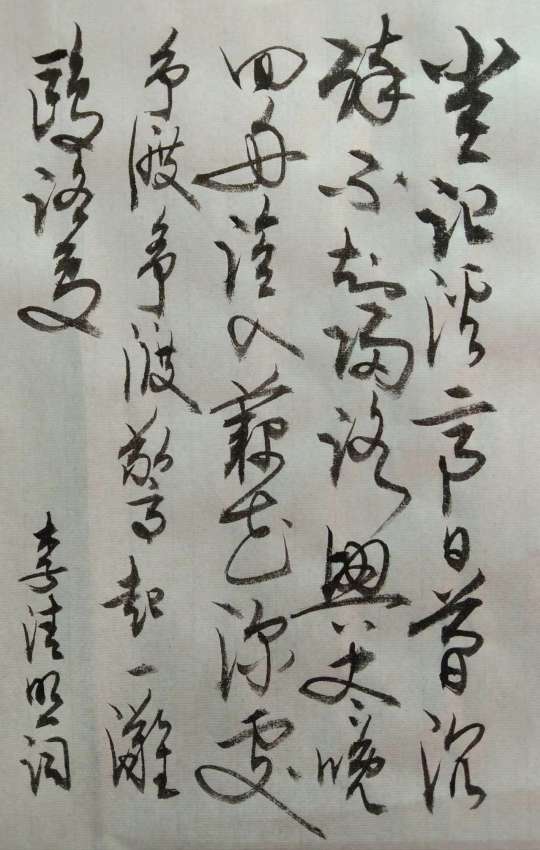 常记溪亭日暮沉
醉不知归路兴尽晚
回舟误入藕花深处
争渡争渡惊起一滩
鸥鹭
李清照词